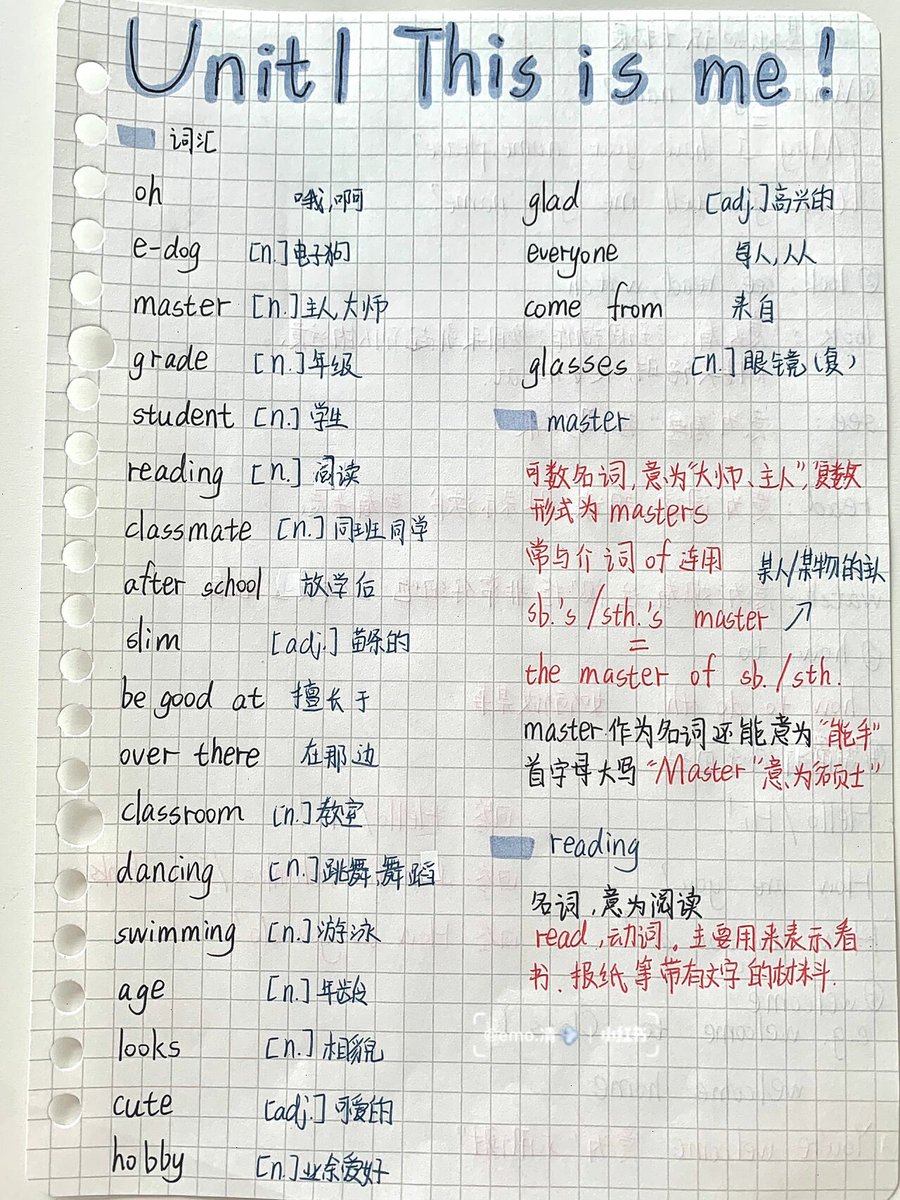 Unit1 This is me!
词汇
oh 哦,啊
e-dog [n.]电子狗
master [n.]主人,大师
grade [n.]年级
student [n.]学生
reading [n.]阅读
classmate [n.]同班同学
after school 放学后
slim [adj.]苗条的
be good at 擅长于
over there 在那边
classroom [n.]教室
dancing [n.]跳舞,舞蹈
swimming [n.]游泳
age [n.]年龄
looks [n.]相貌
cute [adj.]可爱的
hobby [n.]业余爱好
glad [adj.]高兴的
everyone 每人,人人
come from 来自
glasses [n.]眼镜(复)
master
可数名词,意为"大师、主人",复数
形式为masters
常与介词of连用 某人/某物的主人
sb.'s/sth.'s master ↗
=
the master of sb./sth.
master作为名词还能意为"能手"
首字母大写"Master"意为"硕士"
reading
名词,意为阅读
read,动词。主要用来表示看
书、报纸等带有文字的材料.
小红书